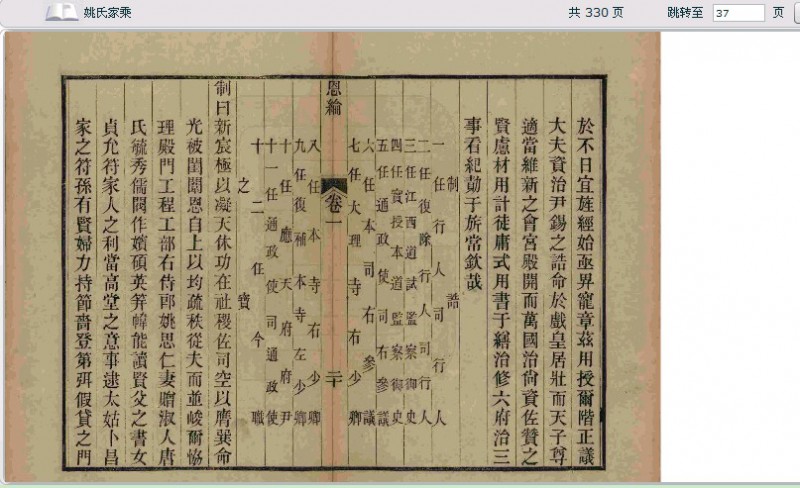 姚氏家乘
共 330 页
跳转至 37 页
於不日宜旌經始亟畀寵章茲用授爾階正議
大夫資治尹錫之誥命於戲皇居壯而天子尊
適當維新之會宮殿開而萬國治尙資佐贊之
賢慮材用計徒庸式用書于繕治修六府治三
事看紀勛于旂常欽哉
制誥
一任行人司行人
二任復除行人司行人
三任江西道試監察御史
四任實授本道監察御史
五任通政使司右參議
六任本司右參議
七任大理寺右少卿
恩綸
卷一
二十
又任本寺右少卿
九任復補本寺左少卿
十任應天府府尹
十一任通政使司通政使
十二任今職
之寶
制曰新宸極以凝天休功在社稷佐司空以膺巽命
光被閨闥恩自上以均疏秩從夫而並峻爾協
理殿門工程工部右侍郎姚思仁妻贈淑人唐
氏毓秀儒閥作嬪碩英筓幃能讀賢父之書女
貞允符家人之利當高堂之意事逮太姑卜昌
家之符孫有賢婦力持節嗇登第弭假貸之門